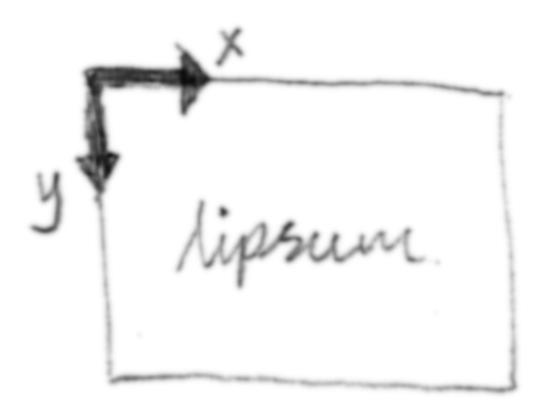 x
y
lipsum